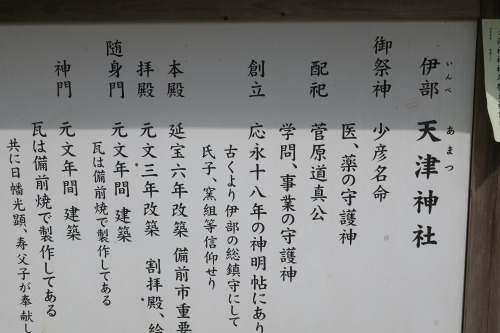 伊部 天津神社
いんべ あまつ
御祭神 少彦名命
医、薬の守護神
配祀 菅原道真公
学問、事業の守護神
創立 応永十八年の神明帖にあり
古くより伊部の総鎮守にして
氏子、窯組等信仰せり
本殿 延宝六年改築 備前市重要
拝殿 元文三年改築 割拝殿、絵
随身門 元文年間 建築
瓦は備前焼で製作してある
神門 元文年間 建築
瓦は備前焼で製作してある
共に日幡光顕、寿父子が奉献し